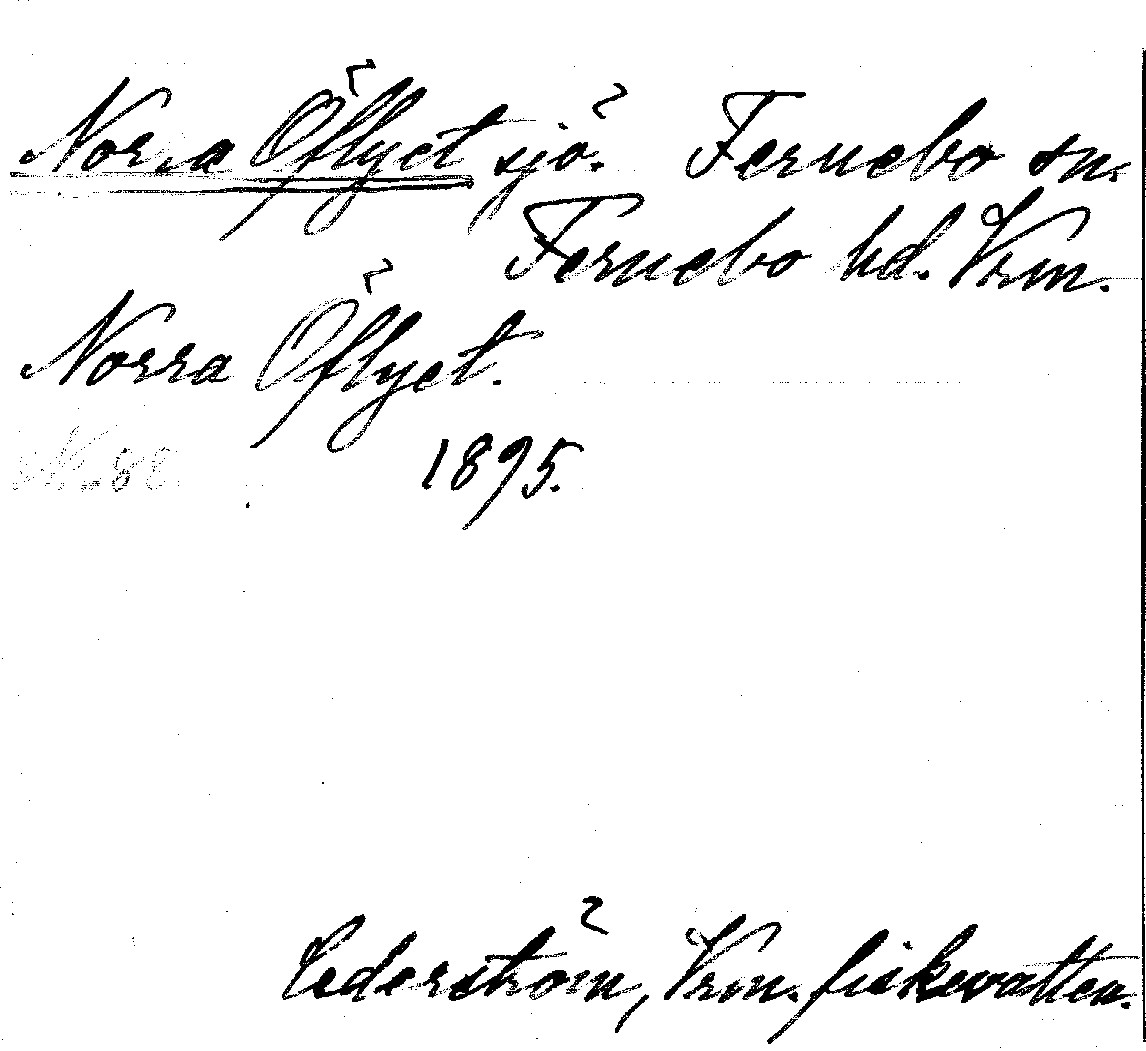 Norra Öflyet sjö. Fernebo sn.
Fernebo hd. Vrm.
Norra Öflyet.
1895.
Cederström, Vrm. fiskevatten.